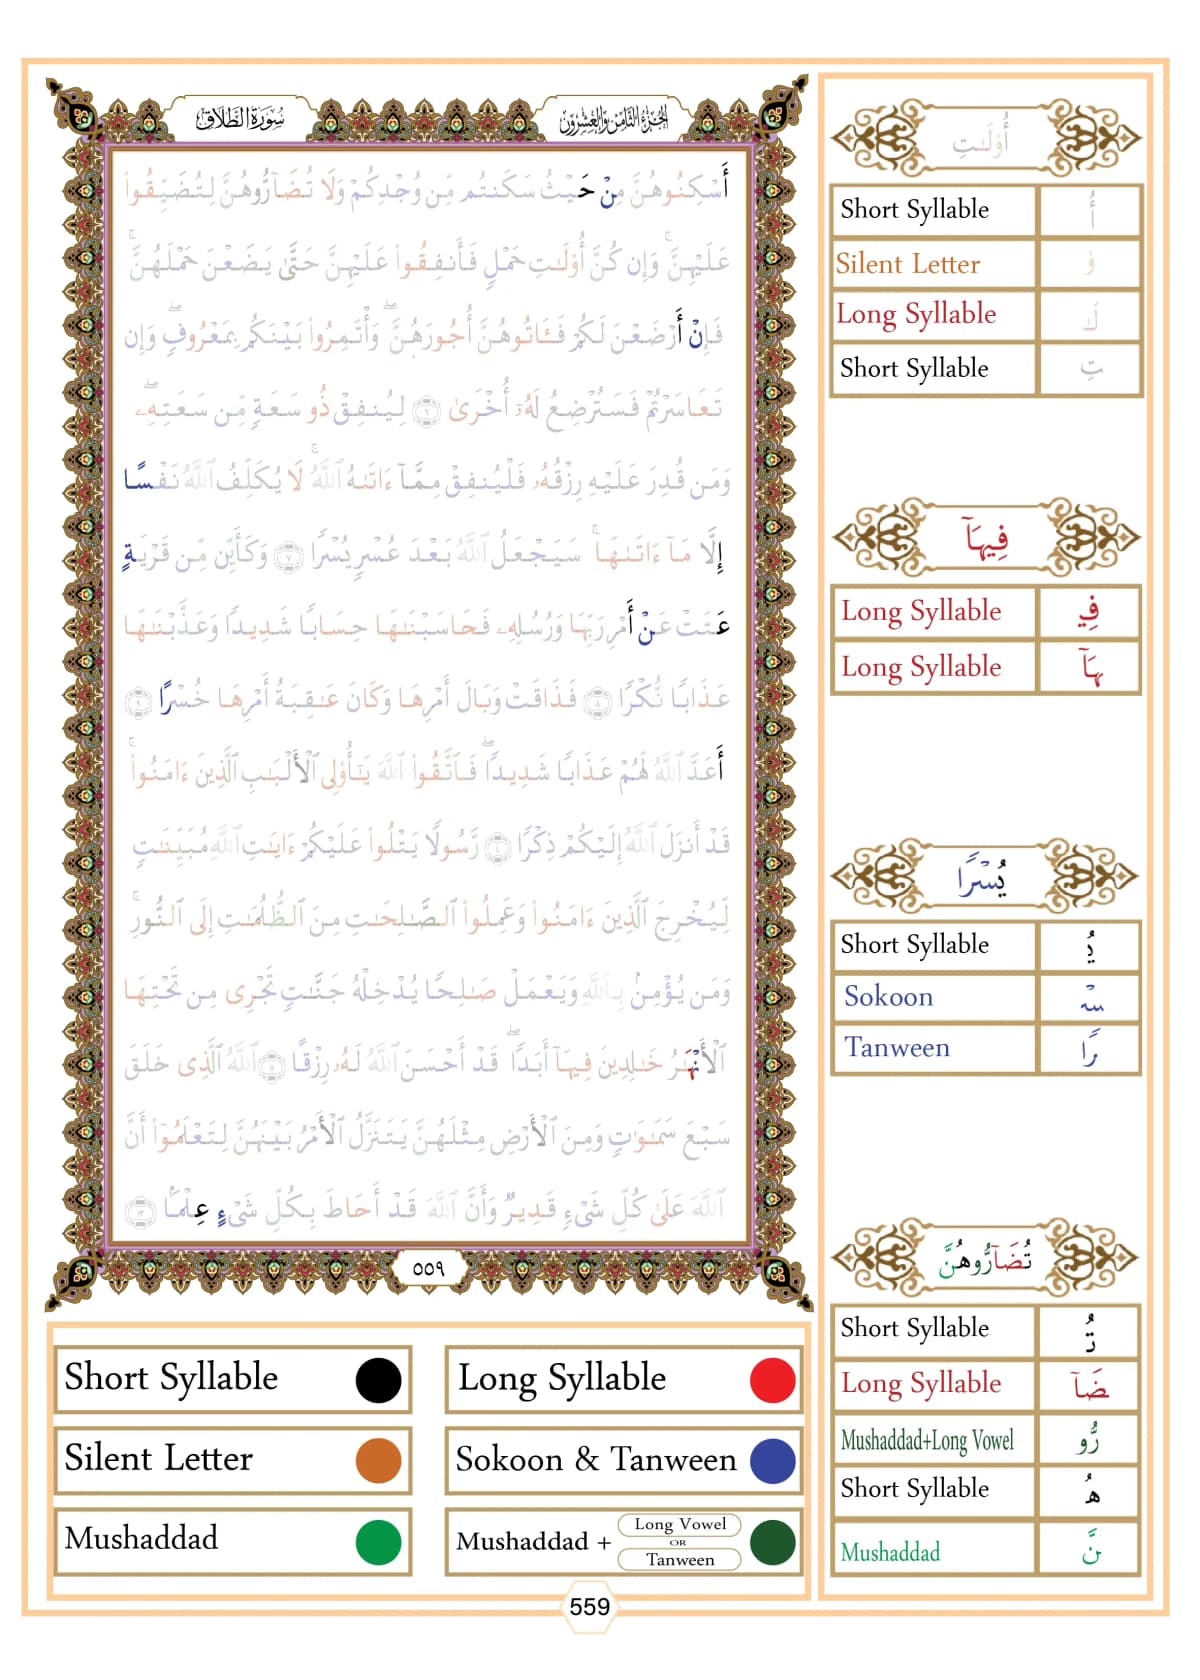 سُورَةُ الطَّلَاقِ
الجُزْءُ الثَّامِنُ وَالعِشْرُونَ
أَسْكِنُوهُنَّ مِنْ حَيْثُ سَكَنتُم مِّن وُجْدِكُمْ وَلَا تُضَآرُّوهُنَّ لِتُضَيِّقُوا۟
عَلَيْهِنَّ ۚ وَإِن كُنَّ أُو۟لَـٰتِ حَمْلٍ فَأَنفِقُوا۟ عَلَيْهِنَّ حَتَّىٰ يَضَعْنَ حَمْلَهُنَّ ۚ
فَإِنْ أَرْضَعْنَ لَكُمْ فَـَٔاتُوهُنَّ أُجُورَهُنَّ ۖ وَأْتَمِرُوا۟ بَيْنَكُم بِمَعْرُوفٍ ۖ وَإِن
تَعَاسَرْتُمْ فَسَتُرْضِعُ لَهُۥٓ أُخْرَىٰ ٦ لِيُنفِقْ ذُو سَعَةٍ مِّن سَعَتِهِۦ ۖ
وَمَن قُدِرَ عَلَيْهِ رِزْقُهُۥ فَلْيُنفِقْ مِمَّآ ءَاتَىٰهُ ٱللَّهُ ۚ لَا يُكَلِّفُ ٱللَّهُ نَفْسًا
إِلَّا مَآ ءَاتَىٰهَا ۚ سَيَجْعَلُ ٱللَّهُ بَعْدَ عُسْرٍ يُسْرًا ٧ وَكَأَيِّن مِّن قَرْيَةٍ
عَتَتْ عَنْ أَمْرِ رَبِّهَا وَرُسُلِهِۦ فَحَاسَبْنَـٰهَا حِسَابًا شَدِيدًا وَعَذَّبْنَـٰهَا
عَذَابًا نُّكْرًا ٨ فَذَاقَتْ وَبَالَ أَمْرِهَا وَكَانَ عَـٰقِبَةُ أَمْرِهَا خُسْرًا ٩
أَعَدَّ ٱللَّهُ لَهُمْ عَذَابًا شَدِيدًا ۖ فَٱتَّقُوا۟ ٱللَّهَ يَـٰٓأُو۟لِى ٱلْأَلْبَـٰبِ ٱلَّذِينَ ءَامَنُوا۟ ۚ
قَدْ أَنزَلَ ٱللَّهُ إِلَيْكُمْ ذِكْرًا ١٠ رَّسُولًا يَتْلُوا۟ عَلَيْكُمْ ءَايَـٰتِ ٱللَّهِ مُبَيِّنَـٰتٍ
لِّيُخْرِجَ ٱلَّذِينَ ءَامَنُوا۟ وَعَمِلُوا۟ ٱلصَّـٰلِحَـٰتِ مِنَ ٱلظُّلُمَـٰتِ إِلَى ٱلنُّورِ ۚ
وَمَن يُؤْمِنۢ بِٱللَّهِ وَيَعْمَلْ صَـٰلِحًا يُدْخِلْهُ جَنَّـٰتٍ تَجْرِى مِن تَحْتِهَا
ٱلْأَنْهَـٰرُ خَـٰلِدِينَ فِيهَآ أَبَدًا ۖ قَدْ أَحْسَنَ ٱللَّهُ لَهُۥ رِزْقًا ١١ ٱللَّهُ ٱلَّذِى خَلَقَ
سَبْعَ سَمَـٰوَٰتٍ وَمِنَ ٱلْأَرْضِ مِثْلَهُنَّ يَتَنَزَّلُ ٱلْأَمْرُ بَيْنَهُنَّ لِتَعْلَمُوٓا۟ أَنَّ
ٱللَّهَ عَلَىٰ كُلِّ شَىْءٍ قَدِيرٌ وَأَنَّ ٱللَّهَ قَدْ أَحَاطَ بِكُلِّ شَىْءٍ عِلْمًۢا ١٢
٥٥٩
أُو۟لَـٰتِ
Short Syllable أُ
Silent Letter و۟
Long Syllable لَـٰ
Short Syllable تِ
فِيهَآ
Long Syllable فِي
Long Syllable هَآ
يُسْرًا
Short Syllable يُ
Sokoon سْ
Tanween رًا
تُضَآرُّوهُنَّ
Short Syllable تُ
Long Syllable ضَآ
Mushaddad+Long Vowel رُّو
Short Syllable هُ
Mushaddad نَّ
Short Syllable
Long Syllable
Silent Letter
Sokoon & Tanween
Mushaddad
Mushaddad + Long Vowel OR Tanween
559